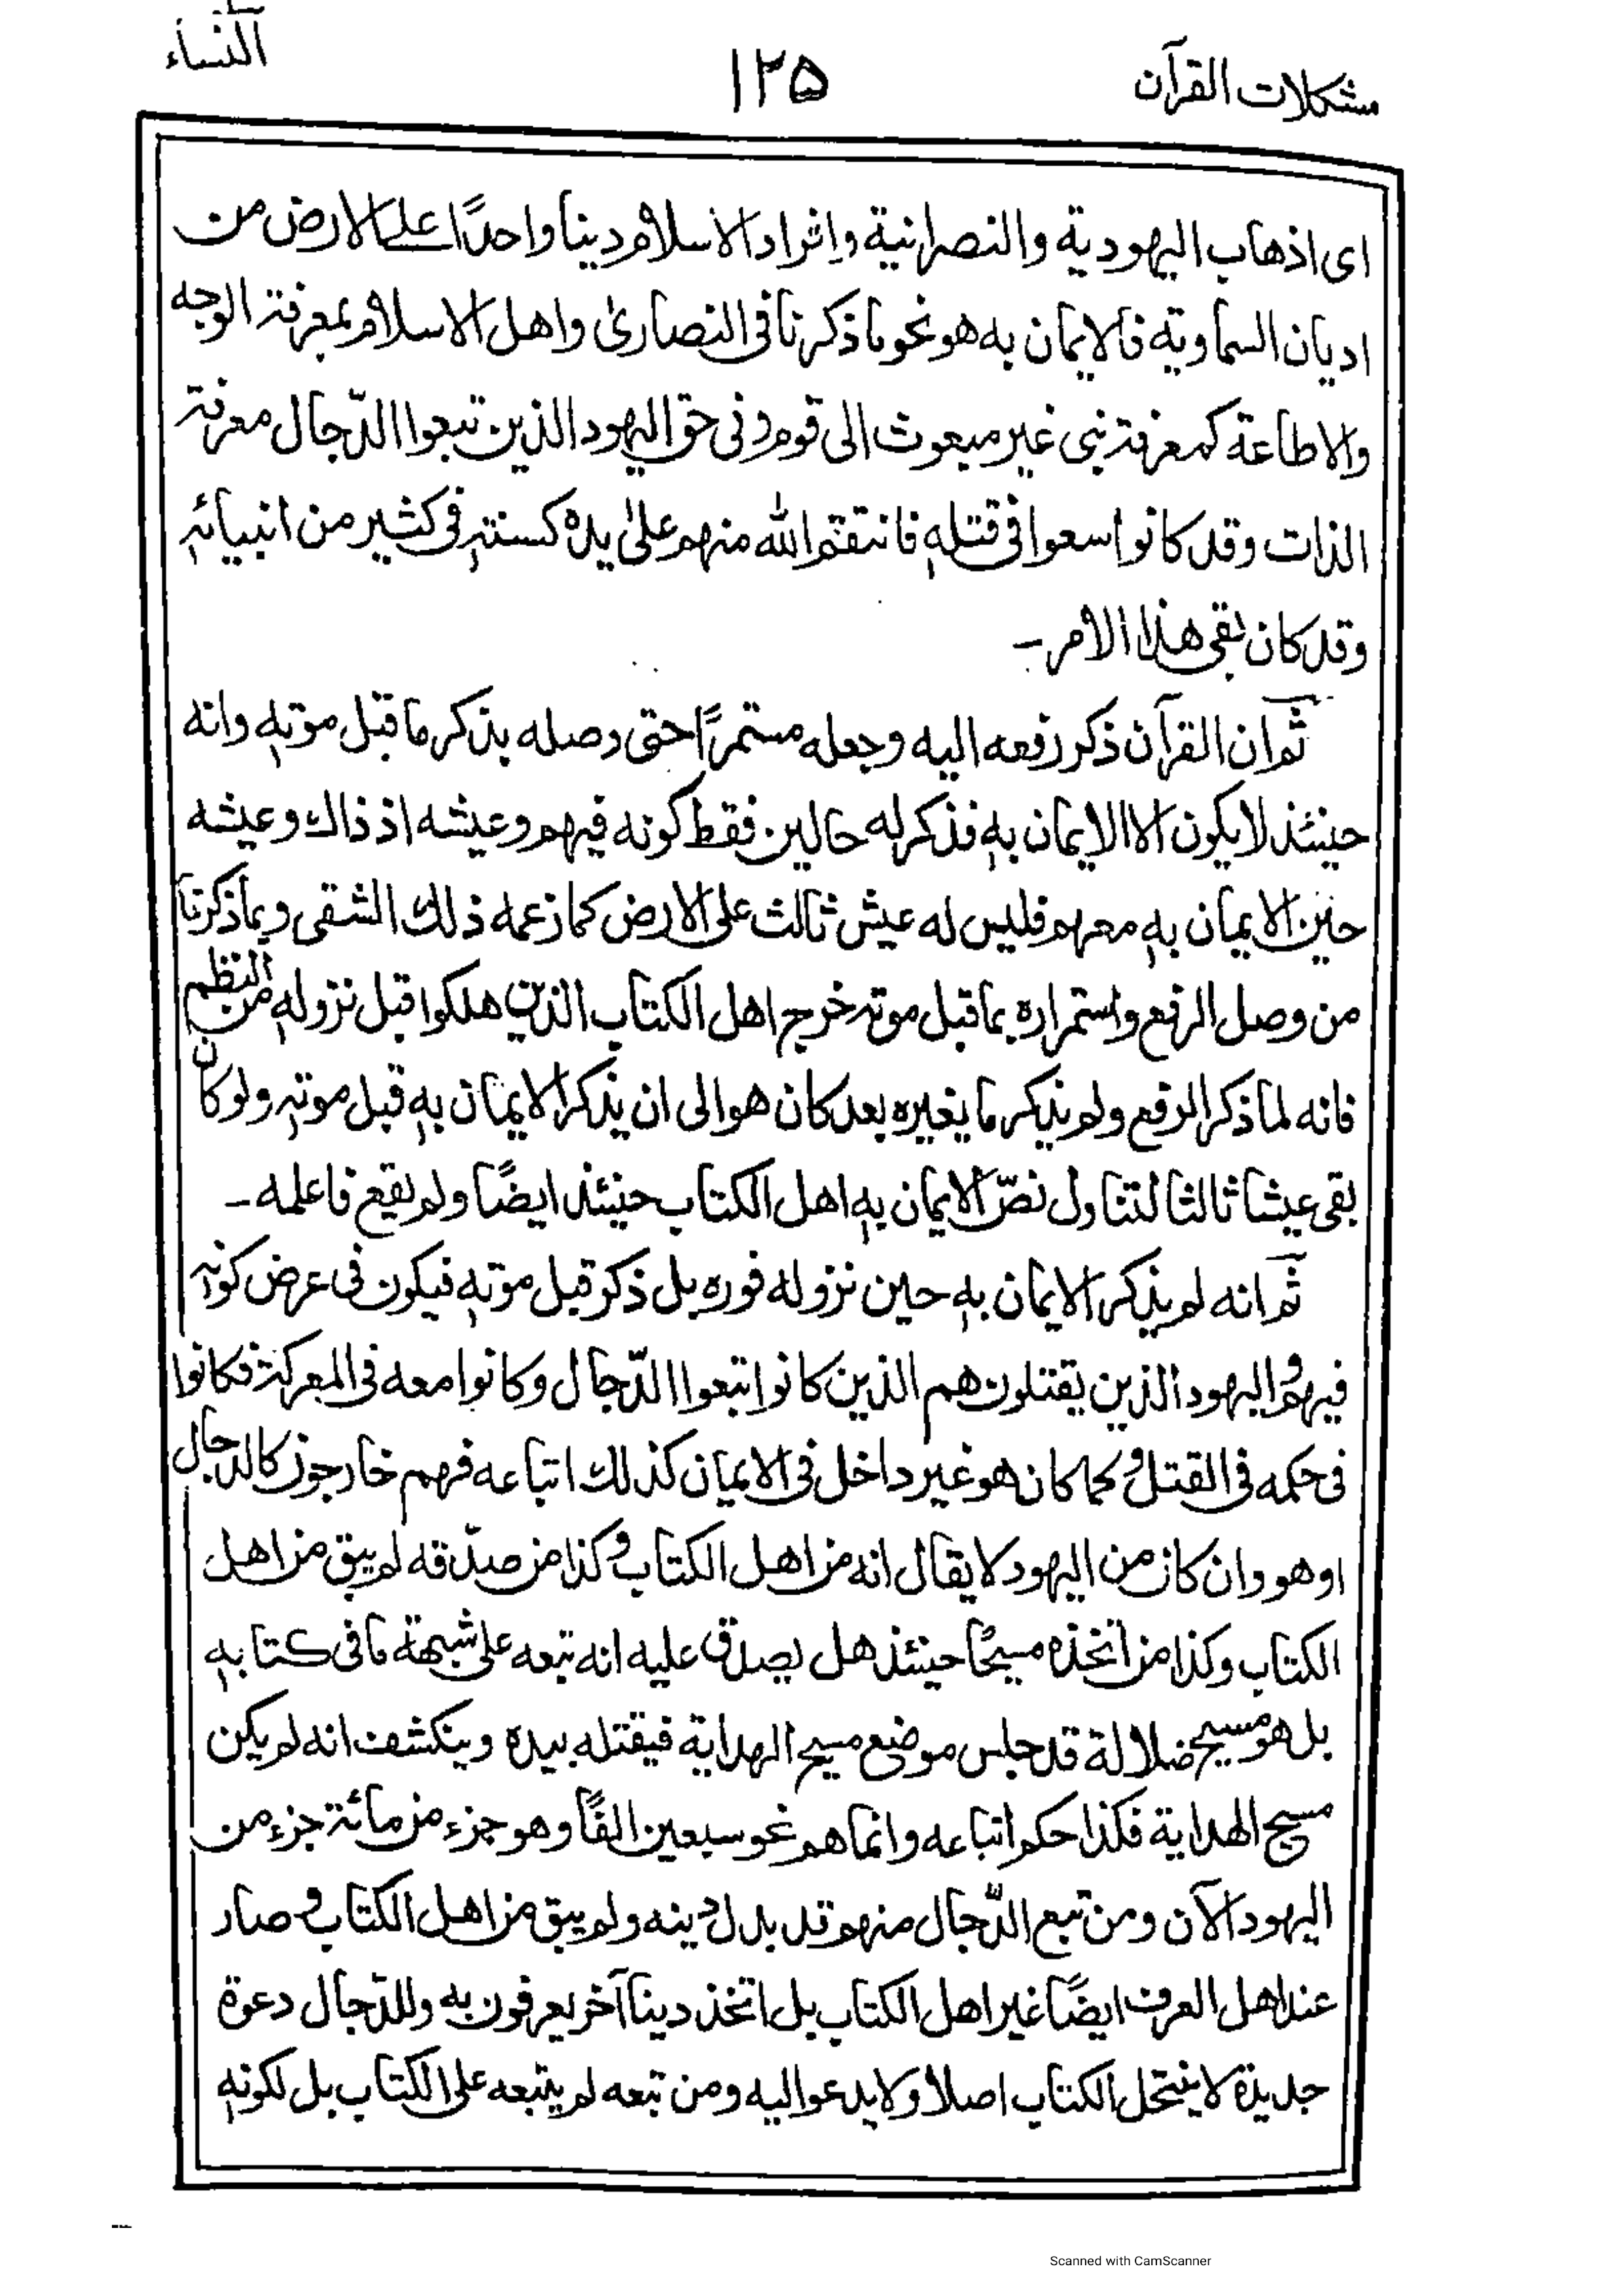 مشكلات القرآن ١٢٥ النساء
اى اذهاب اليهودية والنصرانية وافراد الاسلام دينا واحدًا على الارض من
اديان السماوية فالايمان به هو نحو ما ذكرنا فى النصارىٰ واهل الاسلام بمعرفة الوجه
والاطاعة كمعرفة نبى غير مبعوث الى قوم وفى حق اليهود الذين تبعوا الدّجال معرفة
الذات وقد كانوا سعوا فى قتلهٖ فانتقم الله منهم علىٰ يده كسنتهٖ فى كثير من انبيائهٖ
وقد كان بقى هذا الامر۔
ثم ان القرآن ذكر رفعه اليه وجعله مستمرًا حتى وصله بذكر ما قبل موتهٖ وانه
حينئذ لا يكون الا الايمان بهٖ فذكر له حالين فقط كونه فيهم وعيشه اذ ذاك وعيشه
حين الايمان بهٖ معهم فليس له عيش ثالث على الارض كما زعمه ذلك الشقى وبما ذكرنا
من وصل الرفع واستمراره بما قبل موته خرج اهل الكتاب الذين هلكوا قبل نزولهٖ من النظم
فانه لما ذكر الرفع ولم يذكر ما يغيره بعد كان هو الى ان يذكر الايمان بهٖ قبل موتهٖ ولو كان
بقى عيشا ثالثا لتناول نصّ الايمان بهٖ اهل الكتاب حينئذ ايضًا ولم يقع فاعلمه۔
ثم انه لم يذكر الايمان بهٖ حين نزوله فوره بل ذكر قبل موتهٖ فيكون فى عرض كونهٖ
فيهم واليهود الذين يقتلون هم الذين كانوا تبعوا الدّجال وكانوا معه فى المعركة فكانوا
فى حكمه فى القتل وكما كان هو غير داخل فى الايمان كذلك اتباعه فهم خارجون كالدجال
او هو وان كان من اليهود لا يقال انه من اهل الكتاب وكذا من صدّقه لم يبق من اهل
الكتاب وكذا من اتخذه مسيحًا حينئذ هل يصدق عليه انه تبعه على شبهة ما فى كتابهٖ
بل هو مسيح ضلالة قد جلس موضع مسيح الهداية فيقتله بيده وينكشف انه لم يكن
مسيح الهداية فكذا حكم اتباعه وانما هم نحو سبعين الفًا وهو جزء من مائة جزء من
اليهود الآن ومن تبع الدّجال منهم قد بدل دينه ولم يبق من اهل الكتاب وصار
عند اهل العرف ايضًا غير اهل الكتاب بل اتخذ دينا آخر يعرفون به وللدّجال دعوة
جديدة لا ينتحل الكتاب اصلا ولا يدعو اليه ومن تبعه لم يتبعه على الكتاب بل لكونهٖ
Scanned with CamScanner